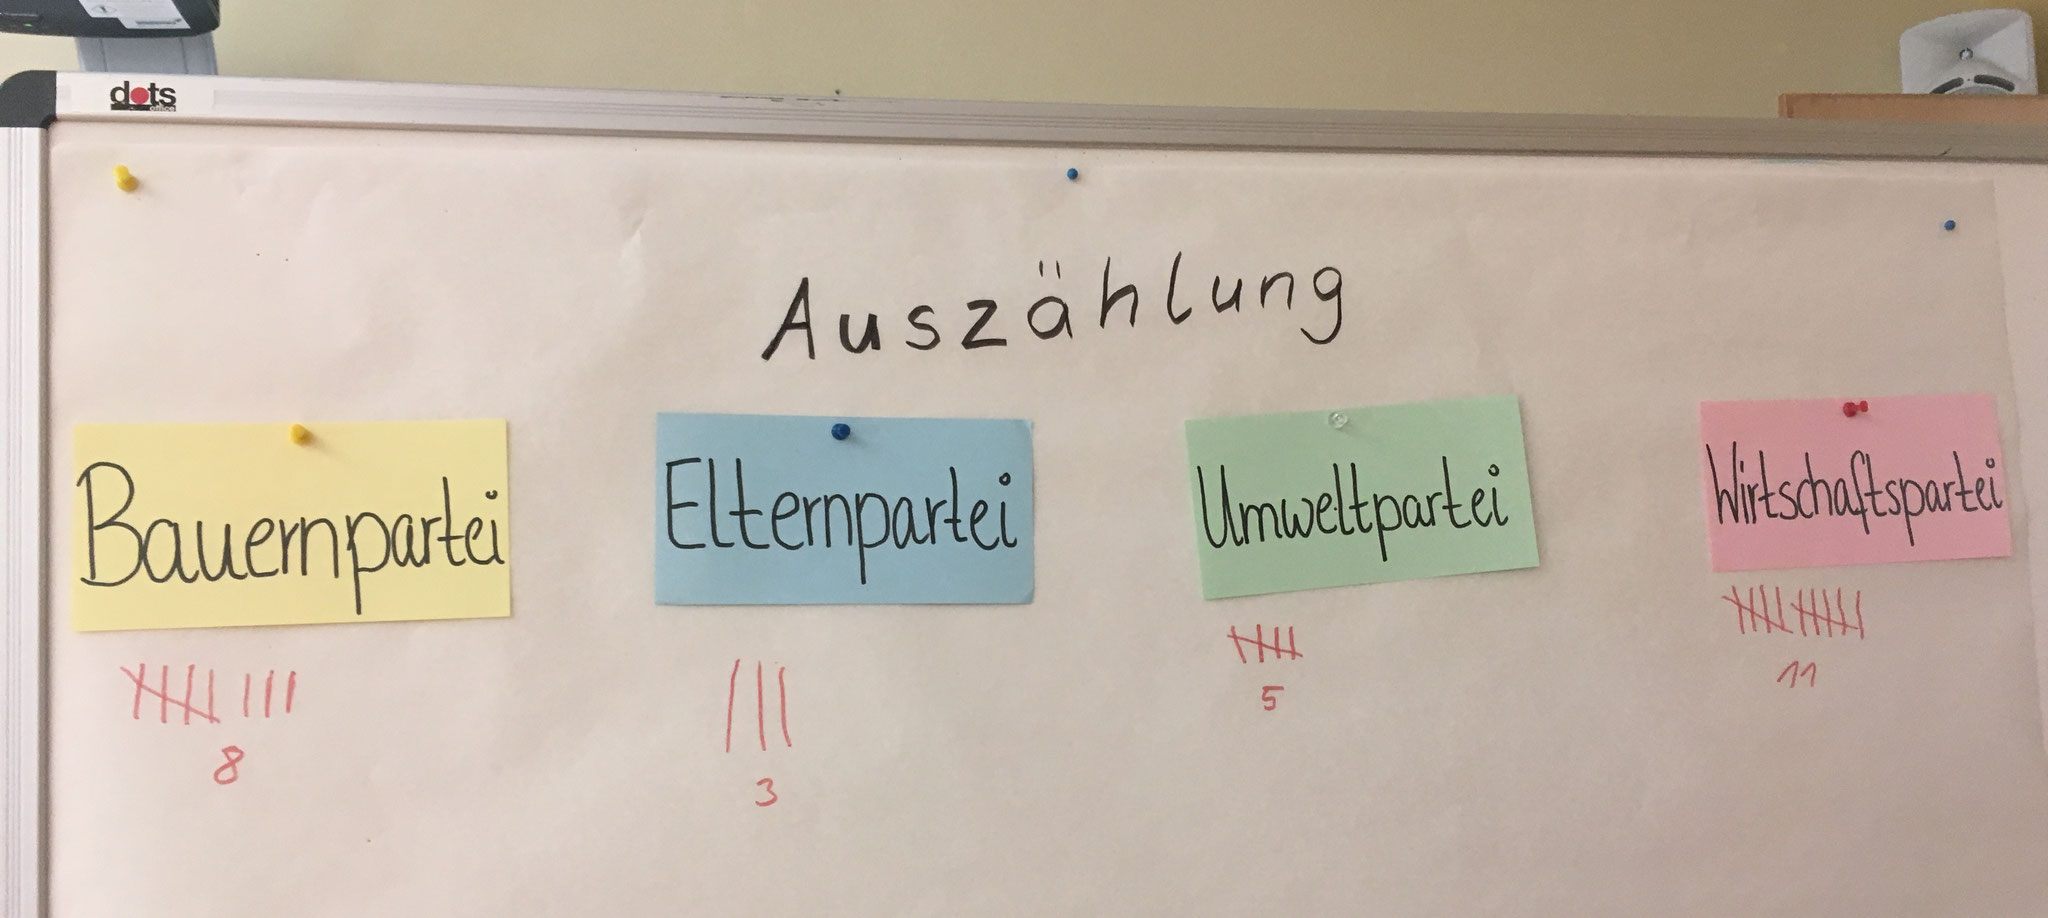 dots
Auszählung
Bauernpartei
Elternpartei
Umweltpartei
Wirtschaftspartei
8
3
5
11